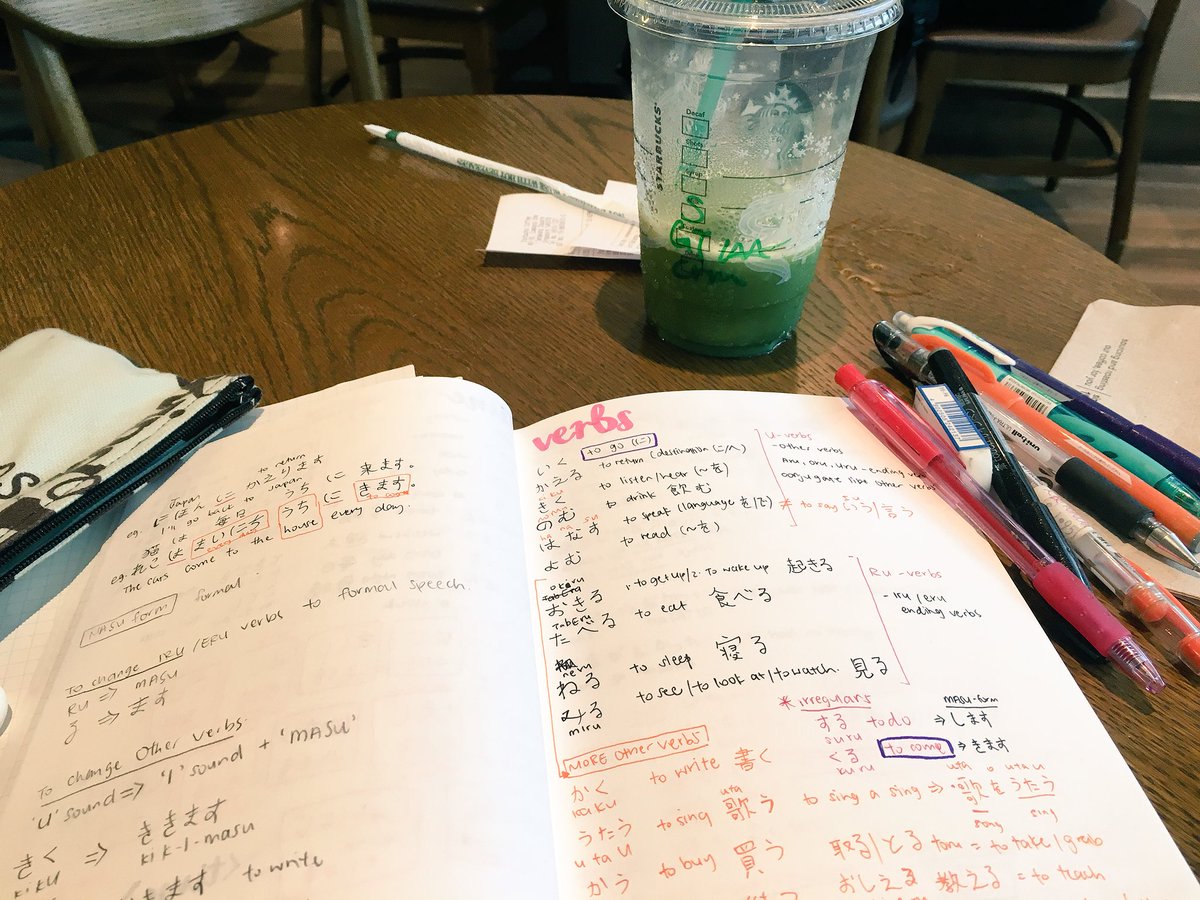 Decaf
Shots
Syrup
STARBUCKS
GT
to return
Japan にほん に かえります
eg. I'll go back to Japan
猫 は 毎日 うちに 来ます。
eg. ねこ は まいにち うち に きます。
every day
to come
The cats come to the house every day.
MASU form formal.
To change IRU/ERU verbs to formal speech.
RU => MASU
る => ます
To change other verbs
'U' sound => 'I' sound + 'MASU'
きく => ききます
kiku kik-i-masu
きます to write
verbs
いく to go (に)
かえる to return (destination に/へ)
きく to listen/hear (〜を)
のむ to drink 飲む
ha na su
はなす to speak (language を/で)
よむ to read (〜を)
U-verbs
- other verbs
Aru, oru, uru - ending verbs
conjugate like other verbs
* to say いう/言う
okiru
おきる 1. to get up/2. to wake up 起きる
tabEru
たべる to eat 食べる
neru
ねる to sleep 寝る
みる to see/to look at/to watch. 見る
miru
Ru-verbs
- iru/eru
ending verbs
* irregulars MASU-form
する to do => します
suru
くる to come => きます
kuru
MORE Other verbs
かく to write 書く
kaku
uta
うたう to sing 歌う
utau
uta o utau
to sing a sing => 歌をうたう
song sing
かう to buy 買う
取る/とる toru = to take/grab
おしえる 教える = to teach